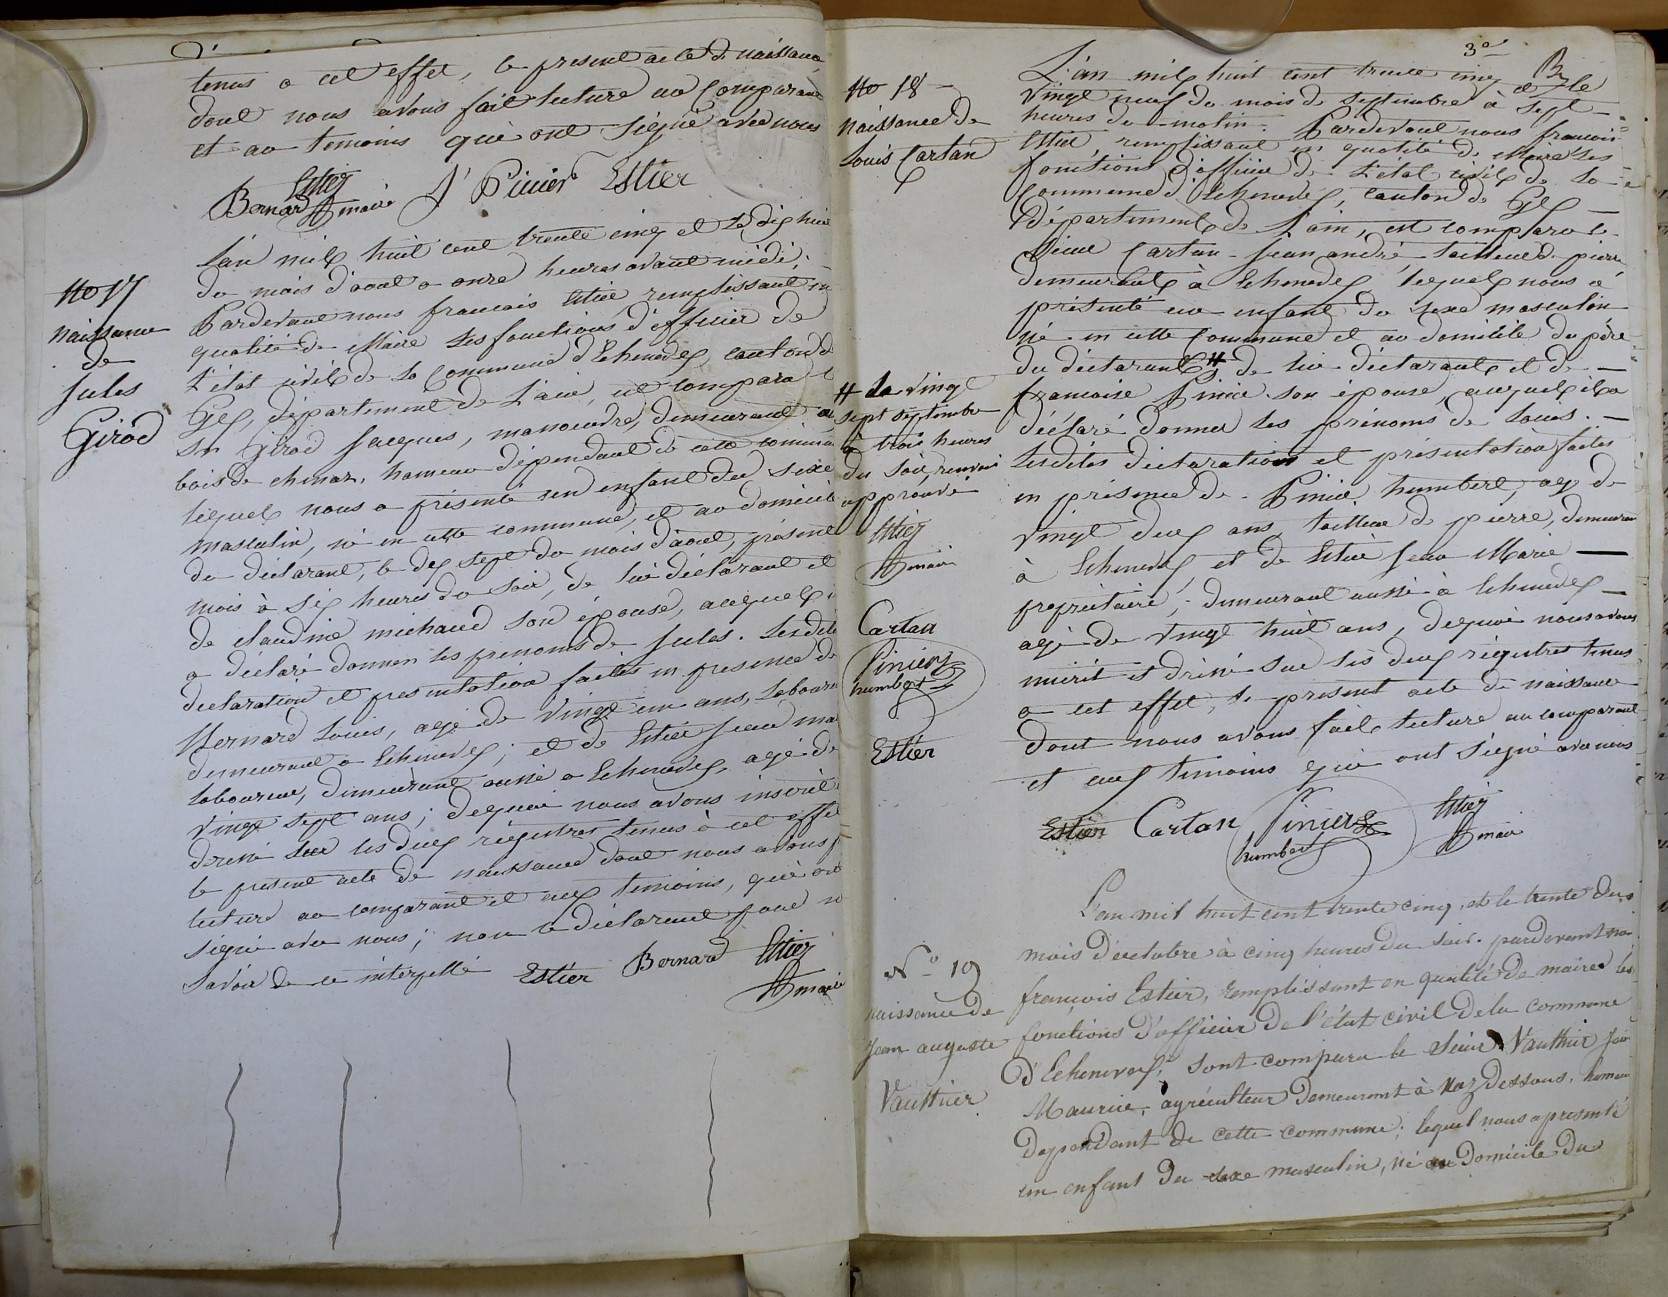 tenus a cet effet, le présent acte de naissance
dont nous avons fait lecture au comparant
et au temoins qui ont signé avec nous
Bernard Estier maire J Pinier Estier
No 17
naissance
de
Jules
Girod
L'an mil huit cent trente cinq et le dix huit
du mois d'aout a onze heures avant midi;
Pardevant nous francais Estier remplissant en
qualité de Maire les fonctions d'officier de
l'état civil de la commune d'Echenevex, canton de
Gex, département de l'ain, est comparu l
Sr Girod Jacques, manoeuvre, demeurant au
bois de chenaz, hameau dépendant de cette commune
lequel nous a présenté un enfant du sexe
masculin, né en cette commune, et au domicile
du déclarant, le dix sept du mois d'aout, présent
mois à six heures du soir, de lui déclarant et
de claudine michaud son épouse, auquel il
a déclaré donner les prenoms de Jules. Lesdite
declaration et presentation faites en presence de
Bernard Louis, agé de vingt un ans, laboureur
demeurant a Echenevex; et de Estier Jean ma
laboureur, demeurant aussi a Echenevex, agé de
vingt sept ans; dequoi nous avons inscrit
dressé sur les deux régistres tenus à cet effet
le present acte de naissance dont nous avons f
lecture au comparant et aux temoins, qui ont
signé avec nous; non le déclarant pour ne
savoir de ce interpellé Estier Bernard Estier
maire
3e
No 18
naissance de
Louis Cartan
L'an mil huit cent trente cinq et le
vingt neuf du mois de septembre à sept
heures du matin. Pardevant nous francois
Estier remplissant en qualité de Maire les
fonctions d'officier de l'état civil de la
commune d'Echenevex, canton de Gex
département de l'ain, est comparu le
Sieur Cartan Jean andré tailleur de pierre
demeurant à Echenevex, lequel nous a
présenté un enfant du sexe masculin
né en cette commune et au domicile du père
du déclarant # de lui déclarant et de
francoise Pinier son épouse, auquel il a
déclaré donner les prénoms de Louis.
Lesdites déclaration et présentation faites
en présence de Pinier humbert, agé de
vingt deux ans, tailleur de pierre, demeurant
à Echenevex et de Estier Jean Marie
propriétaire, demeurant aussi à Echenevex
agé de vingt huit ans, dequoi nous avons
inscrit et dressé sur les deux régistres tenus
a cet effet, le present acte de naissance
dont nous avons fait lecture au comparant
et aux temoins qui ont signé avec nous
# le vingt
sept septembre
à trois heures
du soir, renvoi
approuvé
Estier
maire
Cartan
Pinier
humbert
Estier
Estier Cartan Pinier
humbert Estier
maire
No 19
naissance de
Jean auguste
Vauthier
L'an mil huit cent trente cinq, et le trente du
mois d'octobre à cinq heures du soir. pardevant nous
françois Estier, remplissant en qualité de maire les
fonctions d'officier de l'état civil de la commune
d'Echenevex, sont comparu le sieur Vauthier Jean
Maurice, agriculteur demeurant à Naz dessous, hameau
dépendant de cette commune; lequel nous a presenté
un enfant du sexe masculin, né au domicile du